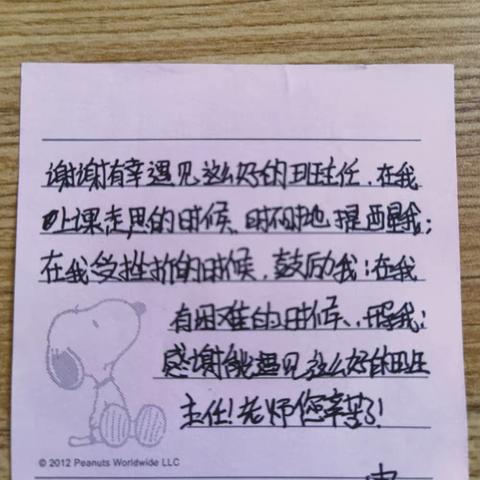 谢谢有幸遇见这么好的班主任，在我
上课走思的时候，时不时地提醒我；
在我受挫折的时候，鼓励我；在我
有困难的时候、帮我；
感谢能遇见这么好的班
主任！老师您辛苦了！
© 2012 Peanuts Worldwide LLC